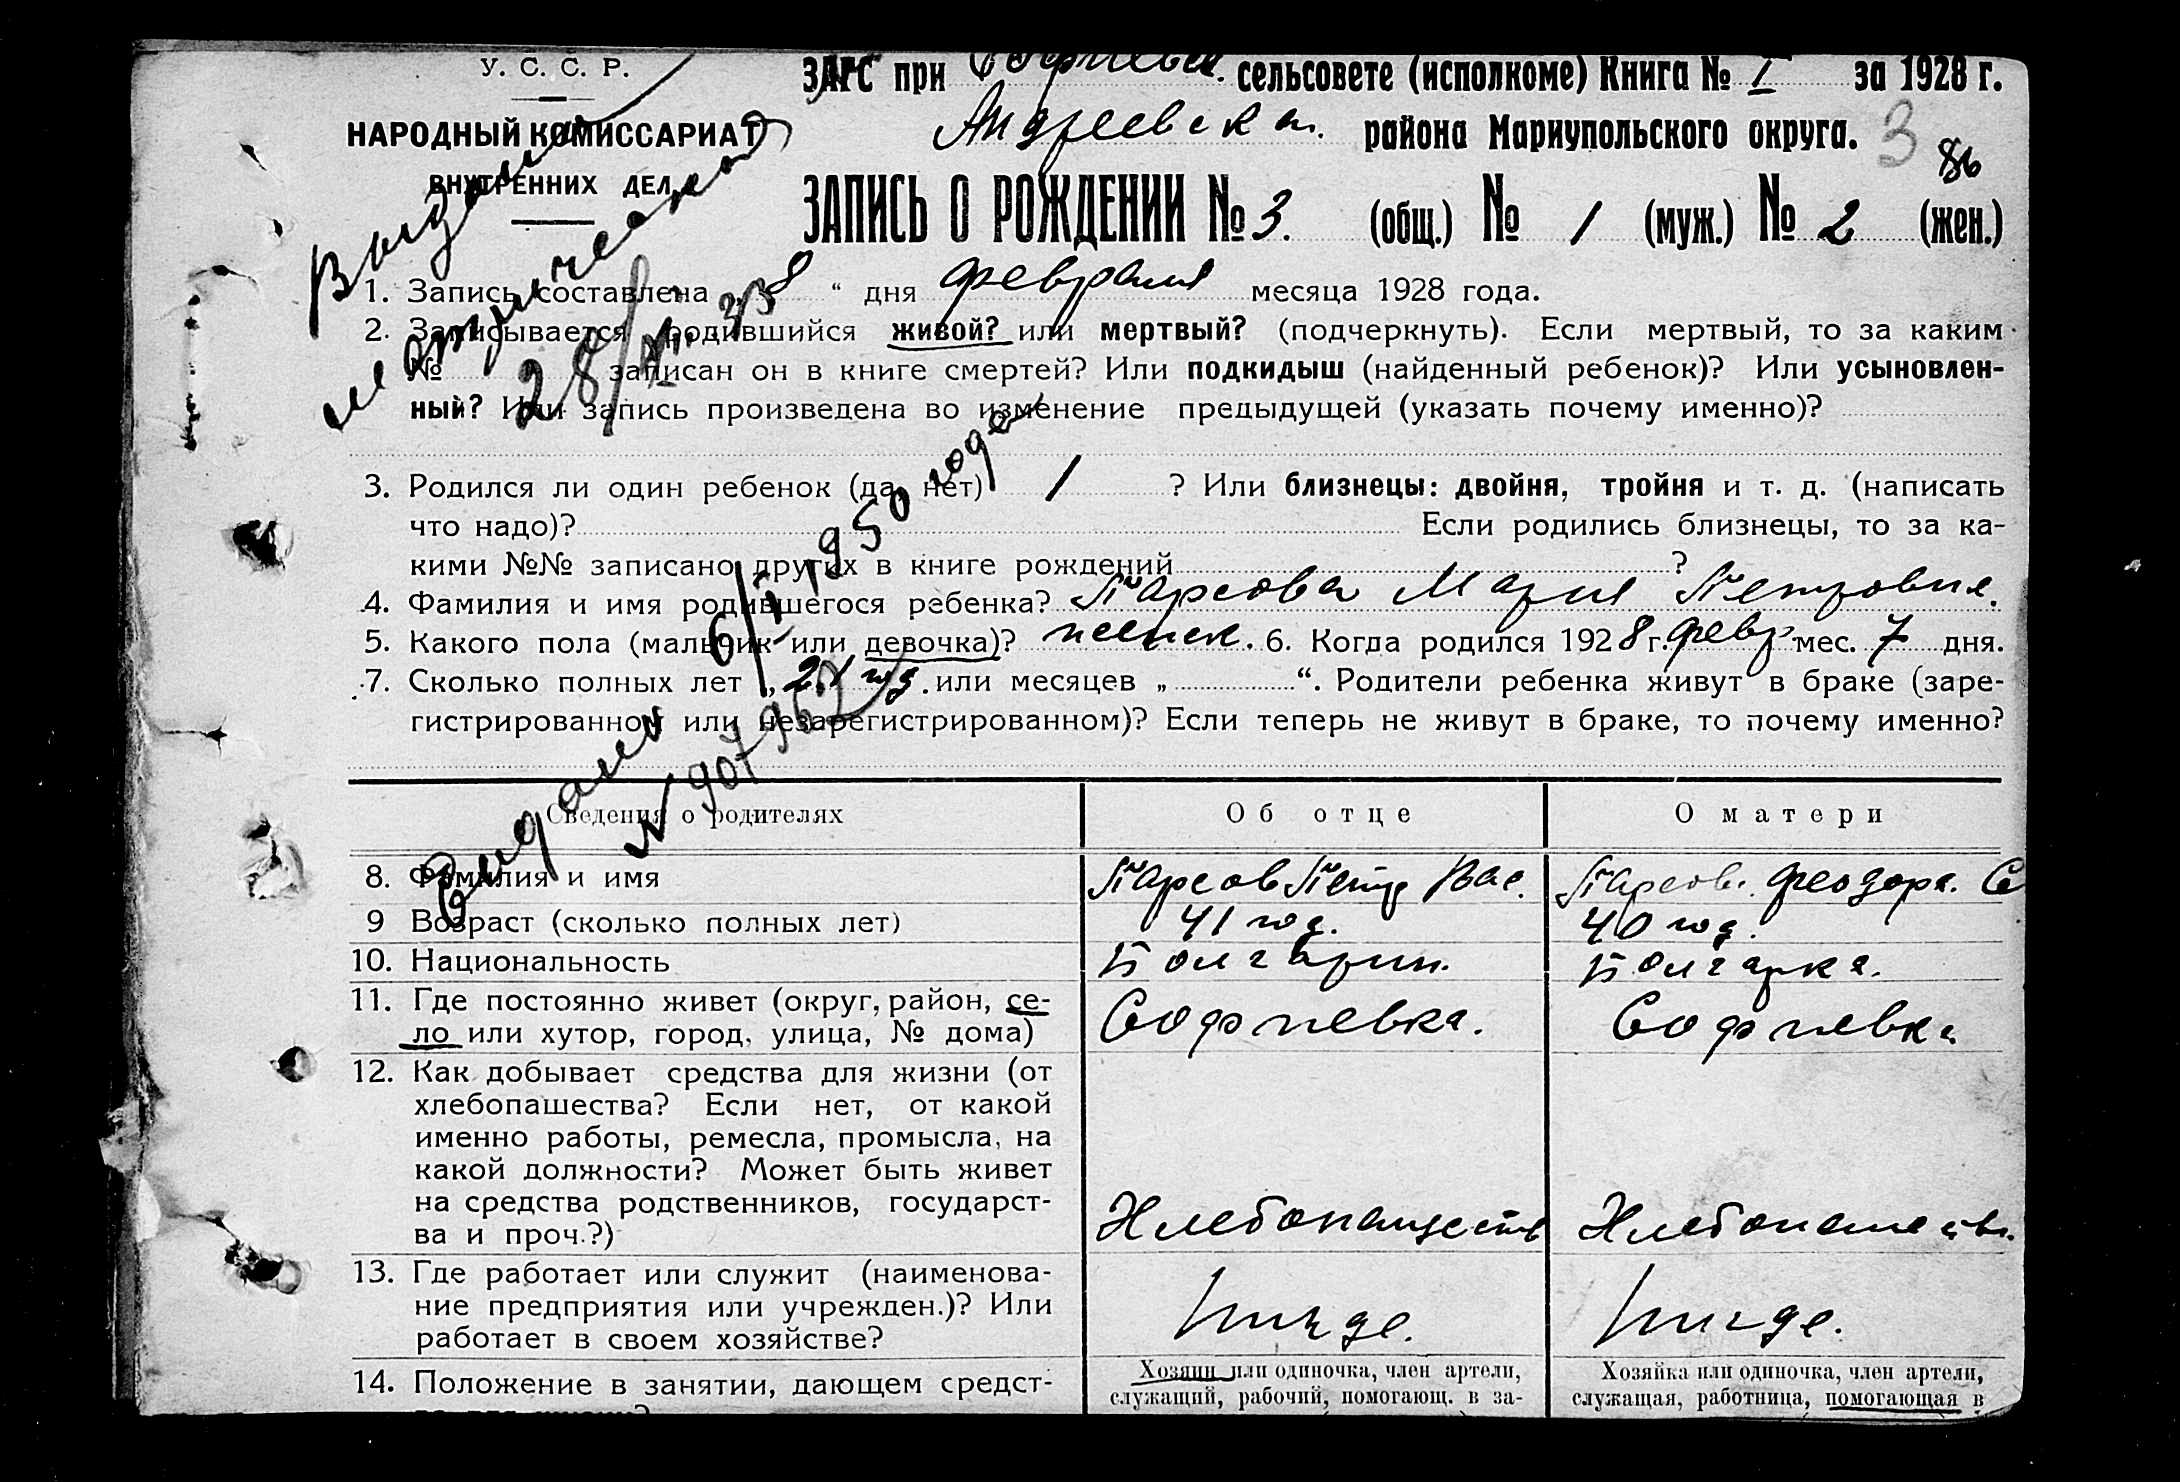 У. С. С. Р.
НАРОДНЫЙ КОМИССАРИАТ
ВНУТРЕННИХ ДЕЛ
ЗАГС при Софиевск. сельсовете (исполкоме) Книга № I за 1928 г.
Андреевска. района Мариупольского округа.
3
86
ЗАПИСЬ О РОЖДЕНИИ № 3. (общ.) № 1 (муж.) № 2 (жен.)
Выдана
метрическая
28/ 38
1. Запись составлена „ 8 “ дня февраля месяца 1928 года.
2. Записывается родившийся живой? или мертвый? (подчеркнуть). Если мертвый, то за каким
№ записан он в книге смертей? Или подкидыш (найденный ребенок)? Или усыновлен-
ный? Или запись произведена во изменение предыдущей (указать почему именно)?
3. Родился ли один ребенок (да, нет) 1 ? Или близнецы: двойня, тройня и т. д. (написать
что надо)? Если родились близнецы, то за ка-
кими №№ записано других в книге рождений ?
4. Фамилия и имя родившегося ребенка? Парсова Мария Петровна.
5. Какого пола (мальчик или девочка)? женск. 6. Когда родился 1928 г. февр. мес. 7 дня.
7. Сколько полных лет „ 21 год. или месяцев „ “. Родители ребенка живут в браке (заре-
гистрированном или незарегистрированном)? Если теперь не живут в браке, то почему именно?
Видано 6/I 1950 года
N 907962
Сведения о родителях Об отце О матери
8. Фамилия и имя Парсов Петр Вас. Парсов. Феодора. С
9 Возраст (сколько полных лет) 41 год. 40 год.
10. Национальность Болгарин. Болгарка.
11. Где постоянно живет (округ, район, се-
ло или хутор, город, улица, № дома) Софиевка. Софиевка
12. Как добывает средства для жизни (от
хлебопашества? Если нет, от какой
именно работы, ремесла, промысла, на
какой должности? Может быть живет
на средства родственников, государст-
ва и проч.?) Хлебопашеств Хлебопашеств.
13. Где работает или служит (наименова-
ние предприятия или учрежден.)? Или
работает в своем хозяйстве? Нигде. Нигде.
14. Положение в занятии, дающем средст-
Хозяин или одиночка, член артели,
служащий, рабочий, помогающ. в за-
Хозяйка или одиночка, член артели,
служащая, работница, помогающая в